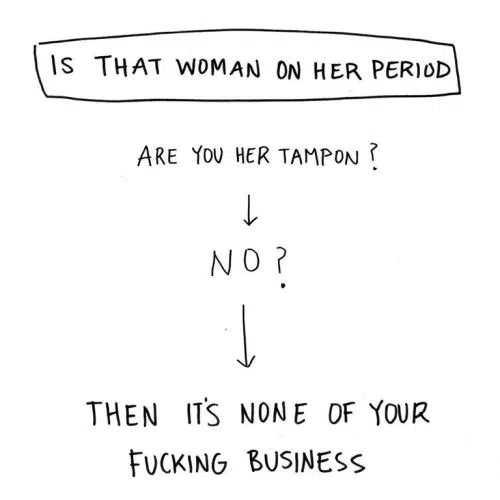 IS THAT WOMAN ON HER PERIOD
ARE YOU HER TAMPON?
NO?
THEN IT'S NONE OF YOUR
FUCKING BUSINESS